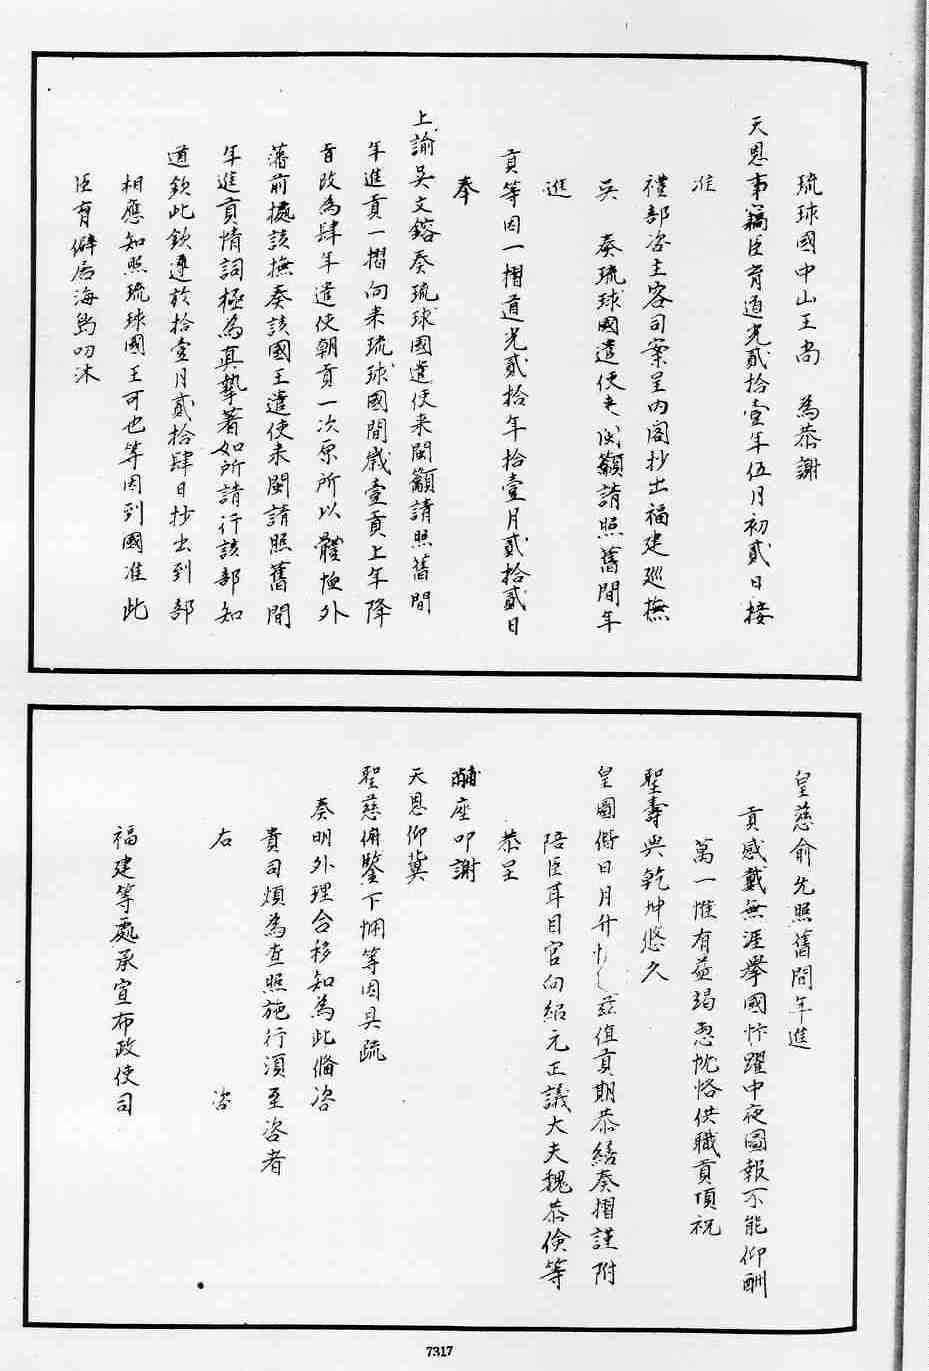 琉球國中山王尚　為恭謝
天恩事竊臣育道光貳拾壹年伍月初貳日接
准
禮部咨主客司案呈內閣抄出福建巡撫
吳　奏琉球國遣使来閩籲請照舊間年
進
貢等因一摺道光貳拾年拾壹月貳拾貳日
奉
上諭吳文鎔奏琉球國遣使来閩籲請照舊間
年進貢一摺向来琉球國間歲壹貢上年降
旨改為肆年遣使朝貢一次原所以體恤外
藩前據該撫奏該國王遣使来閩請照舊間
年進貢情詞極為真摯著如所請行該部知
道欽此欽遵於拾壹月貳拾肆日抄出到部
相應知照琉球國王可也等因到國准此
臣育僻居海島叨沐
皇慈俞允照舊間年進
貢感戴無涯舉國忭躍中夜圖報不能仰酬
萬一惟有益竭悃忱恪供職貢頂祝
聖壽與乾坤悠久
皇圖偕日月升恆茲值貢期恭繕奏摺謹附
陪臣耳目官向紹元正議大夫魏恭儉等
恭呈
黼座叩謝
天恩仰冀
聖慈俯鑒下悃等因具疏
奏明外理合移知為此備咨
貴司煩為查照施行須至咨者
右　咨
福建等處承宣布政使司
7317